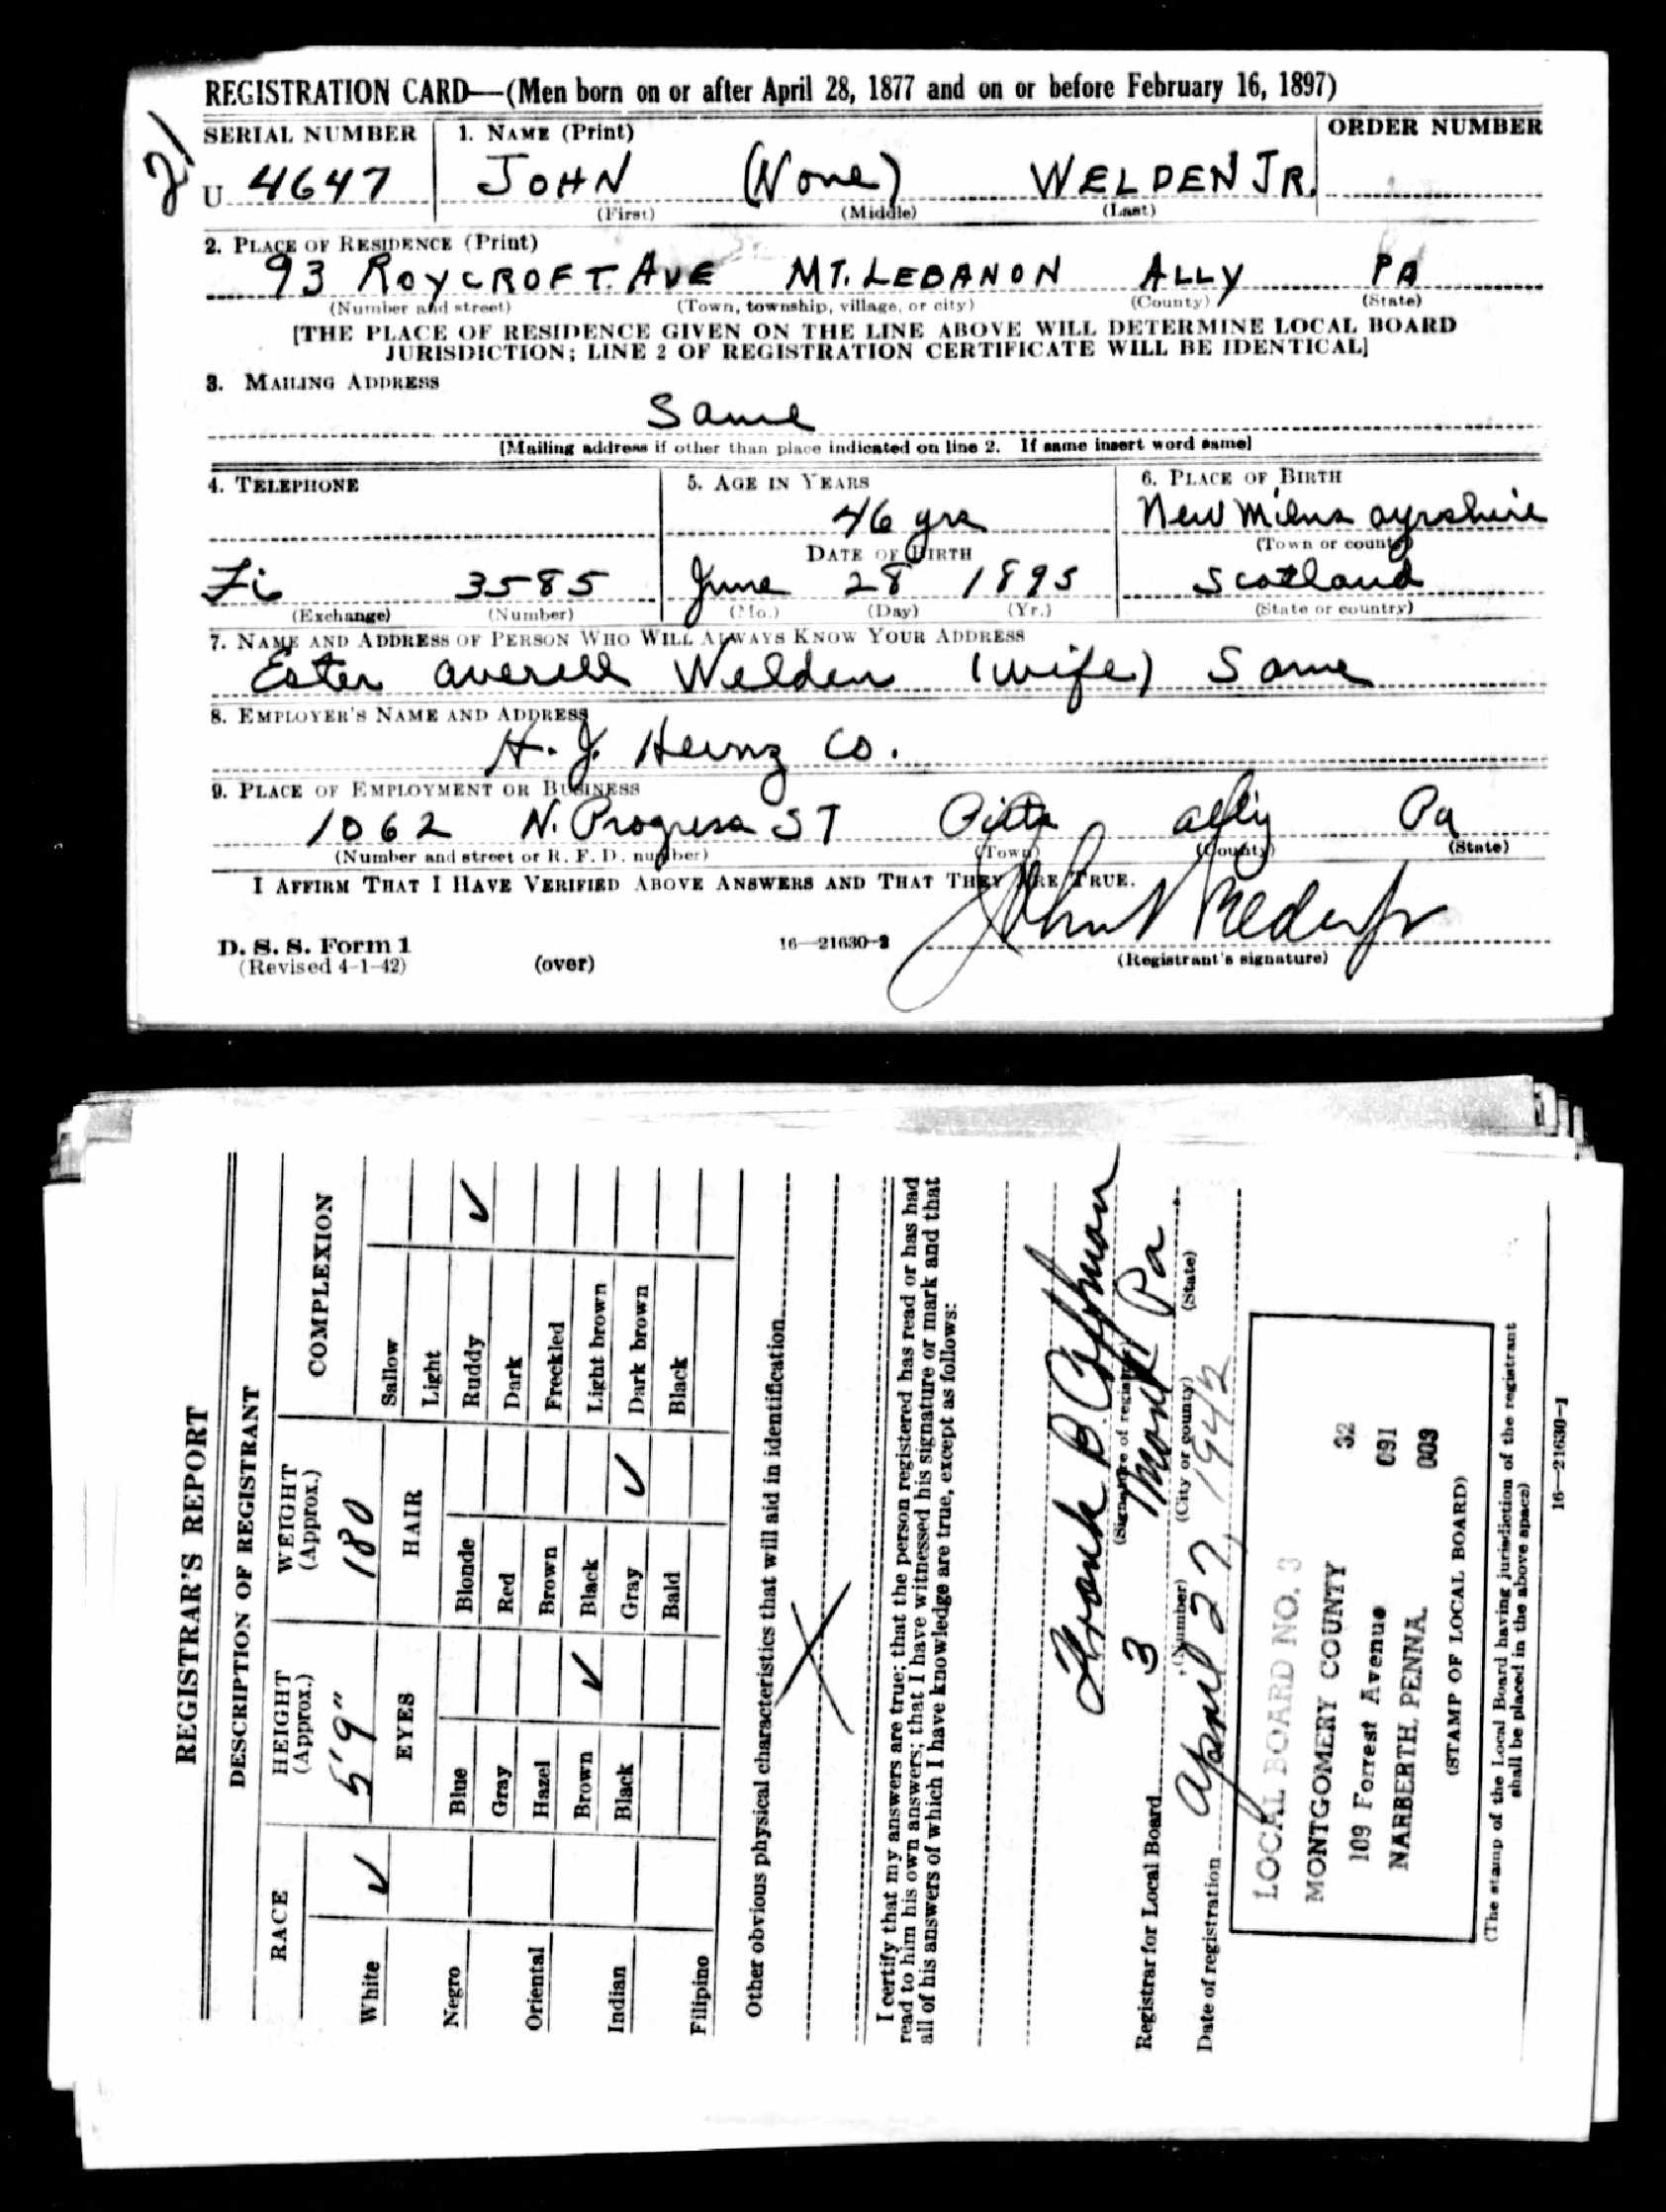 REGISTRATION CARD—(Men born on or after April 28, 1877 and on or before February 16, 1897)
21
SERIAL NUMBER 1. NAME (Print) ORDER NUMBER
U 4647 JOHN (None) WELDEN JR.
(First) (Middle) (Last)
2. PLACE OF RESIDENCE (Print)
93 ROYCROFT. AVE MT. LEBANON ALLY PA
(Number and street) (Town, township, village, or city) (County) (State)
[THE PLACE OF RESIDENCE GIVEN ON THE LINE ABOVE WILL DETERMINE LOCAL BOARD
JURISDICTION; LINE 2 OF REGISTRATION CERTIFICATE WILL BE IDENTICAL]
3. MAILING ADDRESS
Same
[Mailing address if other than place indicated on line 2. If same insert word same]
4. TELEPHONE 5. AGE IN YEARS 6. PLACE OF BIRTH
46 yrs New Milns ayrshire
DATE OF BIRTH (Town or county)
Fi 3585 June 28 1895 Scotland
(Exchange) (Number) (Mo.) (Day) (Yr.) (State or country)
7. NAME AND ADDRESS OF PERSON WHO WILL ALWAYS KNOW YOUR ADDRESS
Ester averell Welden (wife) Same
8. EMPLOYER'S NAME AND ADDRESS
H. J. Heinz Co.
9. PLACE OF EMPLOYMENT OR BUSINESS
1062 N. Progress ST Pitts Pa
(Number and street or R. F. D. number) (Town) (County) (State)
I AFFIRM THAT I HAVE VERIFIED ABOVE ANSWERS AND THAT THEY ARE TRUE.
John Welden Jr
D. S. S. Form 1 16—21630-2
(Revised 4-1-42) (over) (Registrant's signature)
REGISTRAR'S REPORT
DESCRIPTION OF REGISTRANT
RACE HEIGHT (Approx.) WEIGHT (Approx.) COMPLEXION
5'9" 180
White ✓
EYES HAIR
Sallow
Light
Negro Blue Blonde Ruddy ✓
Gray Red Dark
Oriental Hazel Brown Freckled
Brown ✓ Black Light brown
Indian Black Gray ✓ Dark brown
Bald Black
Filipino
Other obvious physical characteristics that will aid in identification
X
I certify that my answers are true; that the person registered has read or has had
read to him his own answers; that I have witnessed his signature or mark and that
all of his answers of which I have knowledge are true, except as follows:
Frank B.
(Signature of registrar)
Registrar for Local Board 3 Mont Pa
(Number) (City or county) (State)
Date of registration April 27, 1942
LOCAL BOARD NO. 3
MONTGOMERY COUNTY 32
109 Forrest Avenue 091
NARBERTH, PENNA. 003
(STAMP OF LOCAL BOARD)
(The stamp of the Local Board having jurisdiction of the registrant
shall be placed in the above space)
16—21630-1